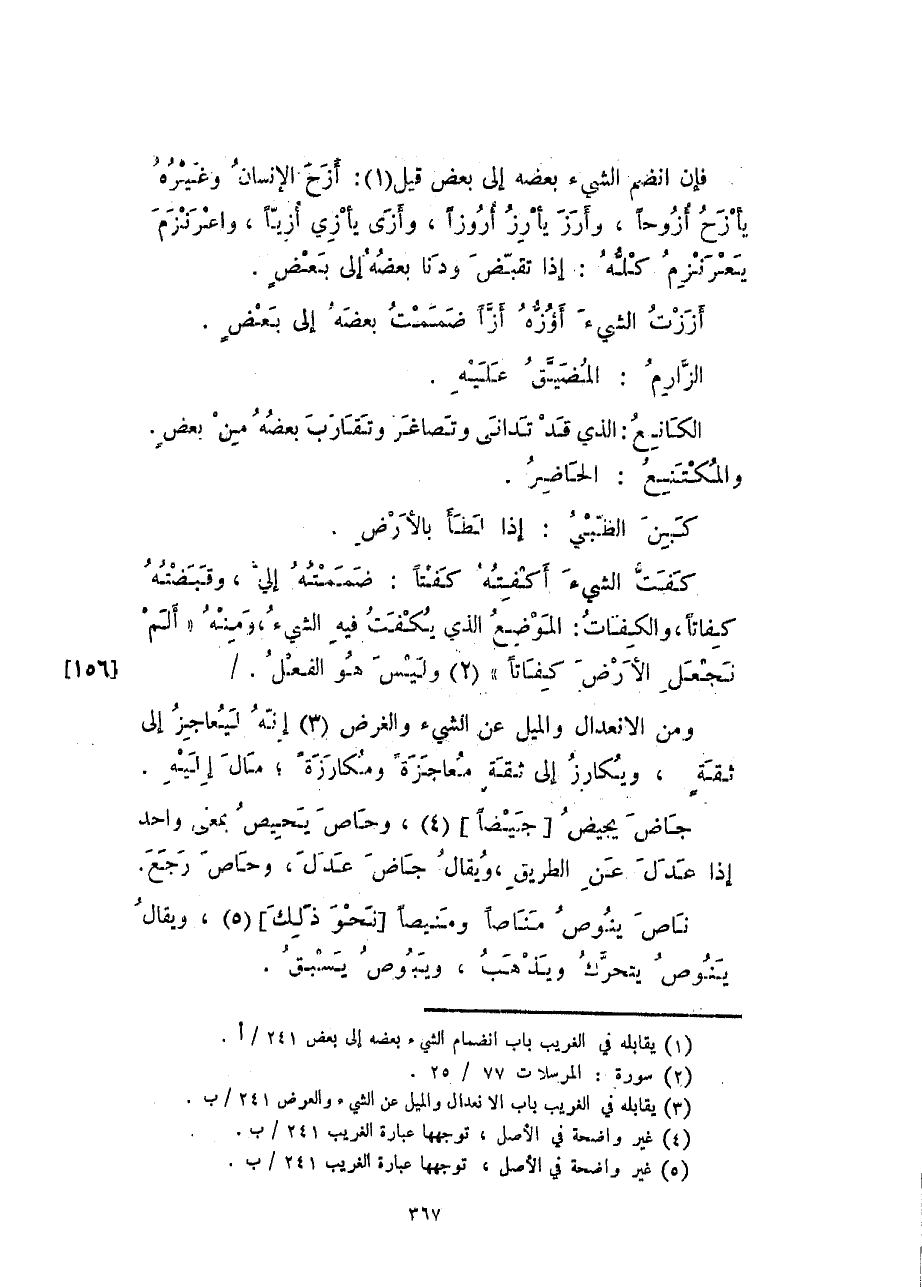 فإن انضم الشيء بعضه إلى بعض قيل(١): أَزَحَ الإنسانُ وغَيْرُهُ
يأْزَحُ أُزُوحاً ، وأَرَزَ يأْرِزُ أُرُوزاً ، وأَزَى يأْزِي أُزِيّاً ، واعْرَنْزَمَ
يَعْرَنْزِمُ كُلُّهُ : إذا تقبّضَ ودَنا بعضُهُ إلى بَعْضٍ .
أَزَزْتُ الشيءَ أَوُزُّهُ أَزَّاً ضَمَمْتُ بعضَهُ إلى بَعْضٍ .
الزَّارِمُ : المُضَيَّقُ عَلَيْهِ .
الكَانِعُ : الذي قَدْ تَدانَى وتَصاغَرَ وتَقَارَبَ بعضُهُ مِنْ بعضٍ .
والمُكْتَنِعُ : الحَاضِرُ .
كَبِنَ الظَّبْيُ : إذا لَطَأَ بالأَرْضِ .
كَفَتُّ الشيءَ أَكْفِتُهُ كَفْتاً : ضَمَمْتُهُ إليّ ، وقَبَضْتُهُ
كِفاتاً، والكِفَاتُ: المَوْضِعُ الذي يُكْفَتُ فيهِ الشيءُ، ومِنْهُ « أَلَمْ
نَجْعَلِ الأَرْضَ كِفَاتاً » (٢) ولَيْسَ هُو الفعْلُ . / [١٥٦]
ومن الانعدال والميل عن الشيء والغرض (٣) إنّهُ لَيُعاجِزُ إلى
ثقَةٍ ، ويُكارِزُ إلى ثقَةٍ مُعاجَزَةً ومُكارَزَةً ؛ مَالَ إلَيْهِ .
جاضَ يجيضُ [جَيْضاً] (٤) ، وحَاصَ يَحِيصُ بمعنى واحد
إذا عَدَلَ عَنِ الطريقِ، ويُقالُ جاضَ عَدَلَ ، وحَاصَ رَجَعَ.
نَاصَ يَنُوصُ مَنَاصاً ومَنيصاً [نَحْوَ ذَلِكَ] (٥) ، ويقالُ
يَنُوصُ يتحرَّكُ ويَذْهَبُ ، ويَبُوصُ يَسْبَقُ .
(١) يقابله في الغريب باب انضمام الشيء بعضه إلى بعض ٢٤١ /أ .
(٢) سورة : المرسلات ٧٧ / ٢٥ .
(٣) يقابله في الغريب باب الانعدال والميل عن الشيء والعرض ٢٤١ /ب .
(٤) غير واضحة في الأصل ، توجهها عبارة الغريب ٢٤١ /ب .
(٥) غير واضحة في الأصل ، توجهها عبارة الغريب ٢٤١ /ب .
٣٦٧